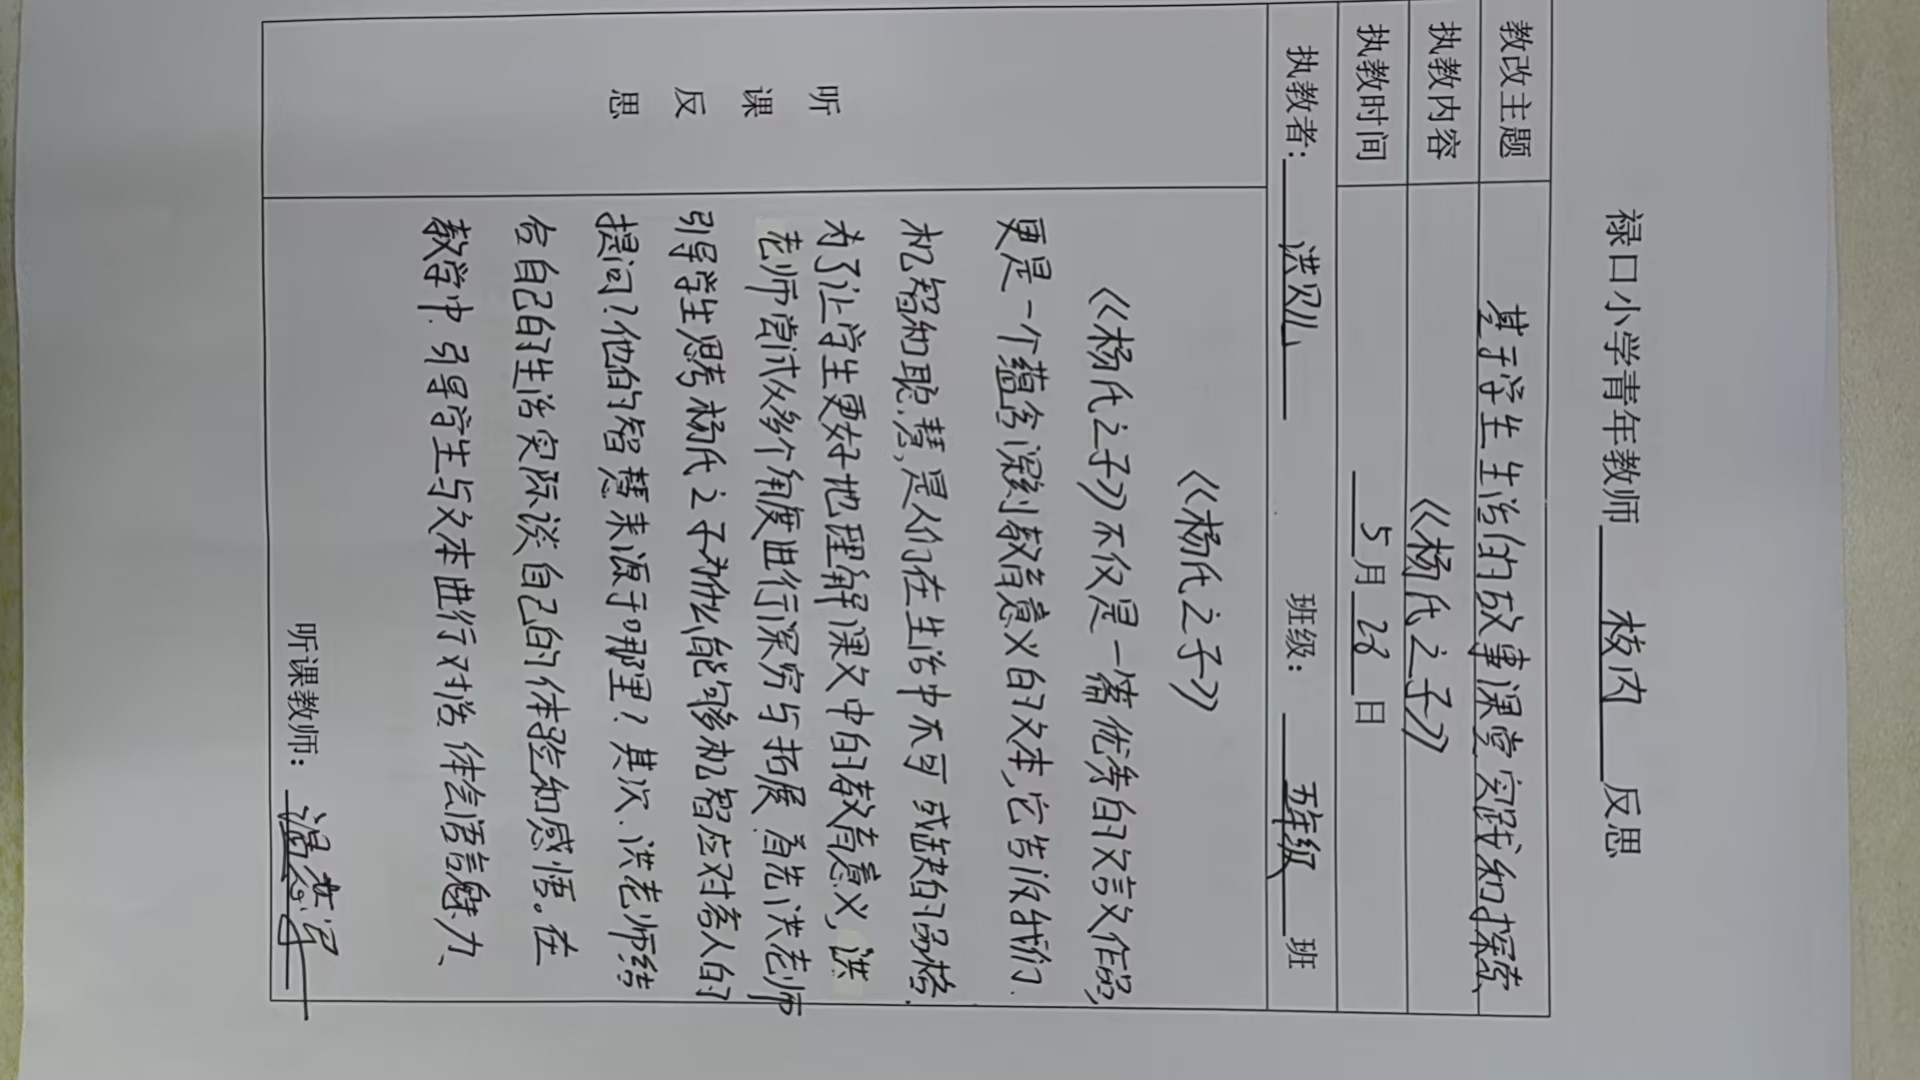 禄口小学青年教师 校内 反思
教改主题 基于学生生活的故事课堂实践和探索
执教内容 《杨氏之子》
执教时间 5月28日
执教者： 洪 班级： 五年级 班
听课反思
《杨氏之子》
《杨氏之子》不仅是一篇优秀的文言文作品,
更是一个蕴含深刻教育意义的文本,它告诉我们.
机智和聪慧,是人们在生活中不可或缺的品格.
为了让学生更好地理解课文中的教育意义,洪
老师尝试从多个角度进行深穷与拓展.首先洪老师
引导学生思考杨氏之子为什么能够机智应对客人的
提问?他的智慧来源于哪里?其次、洪老师结
合自己的生活实际谈自己的体验和感悟。在
教学中.引导学生与文本进行对话,体会语言魅力、
听课教师：